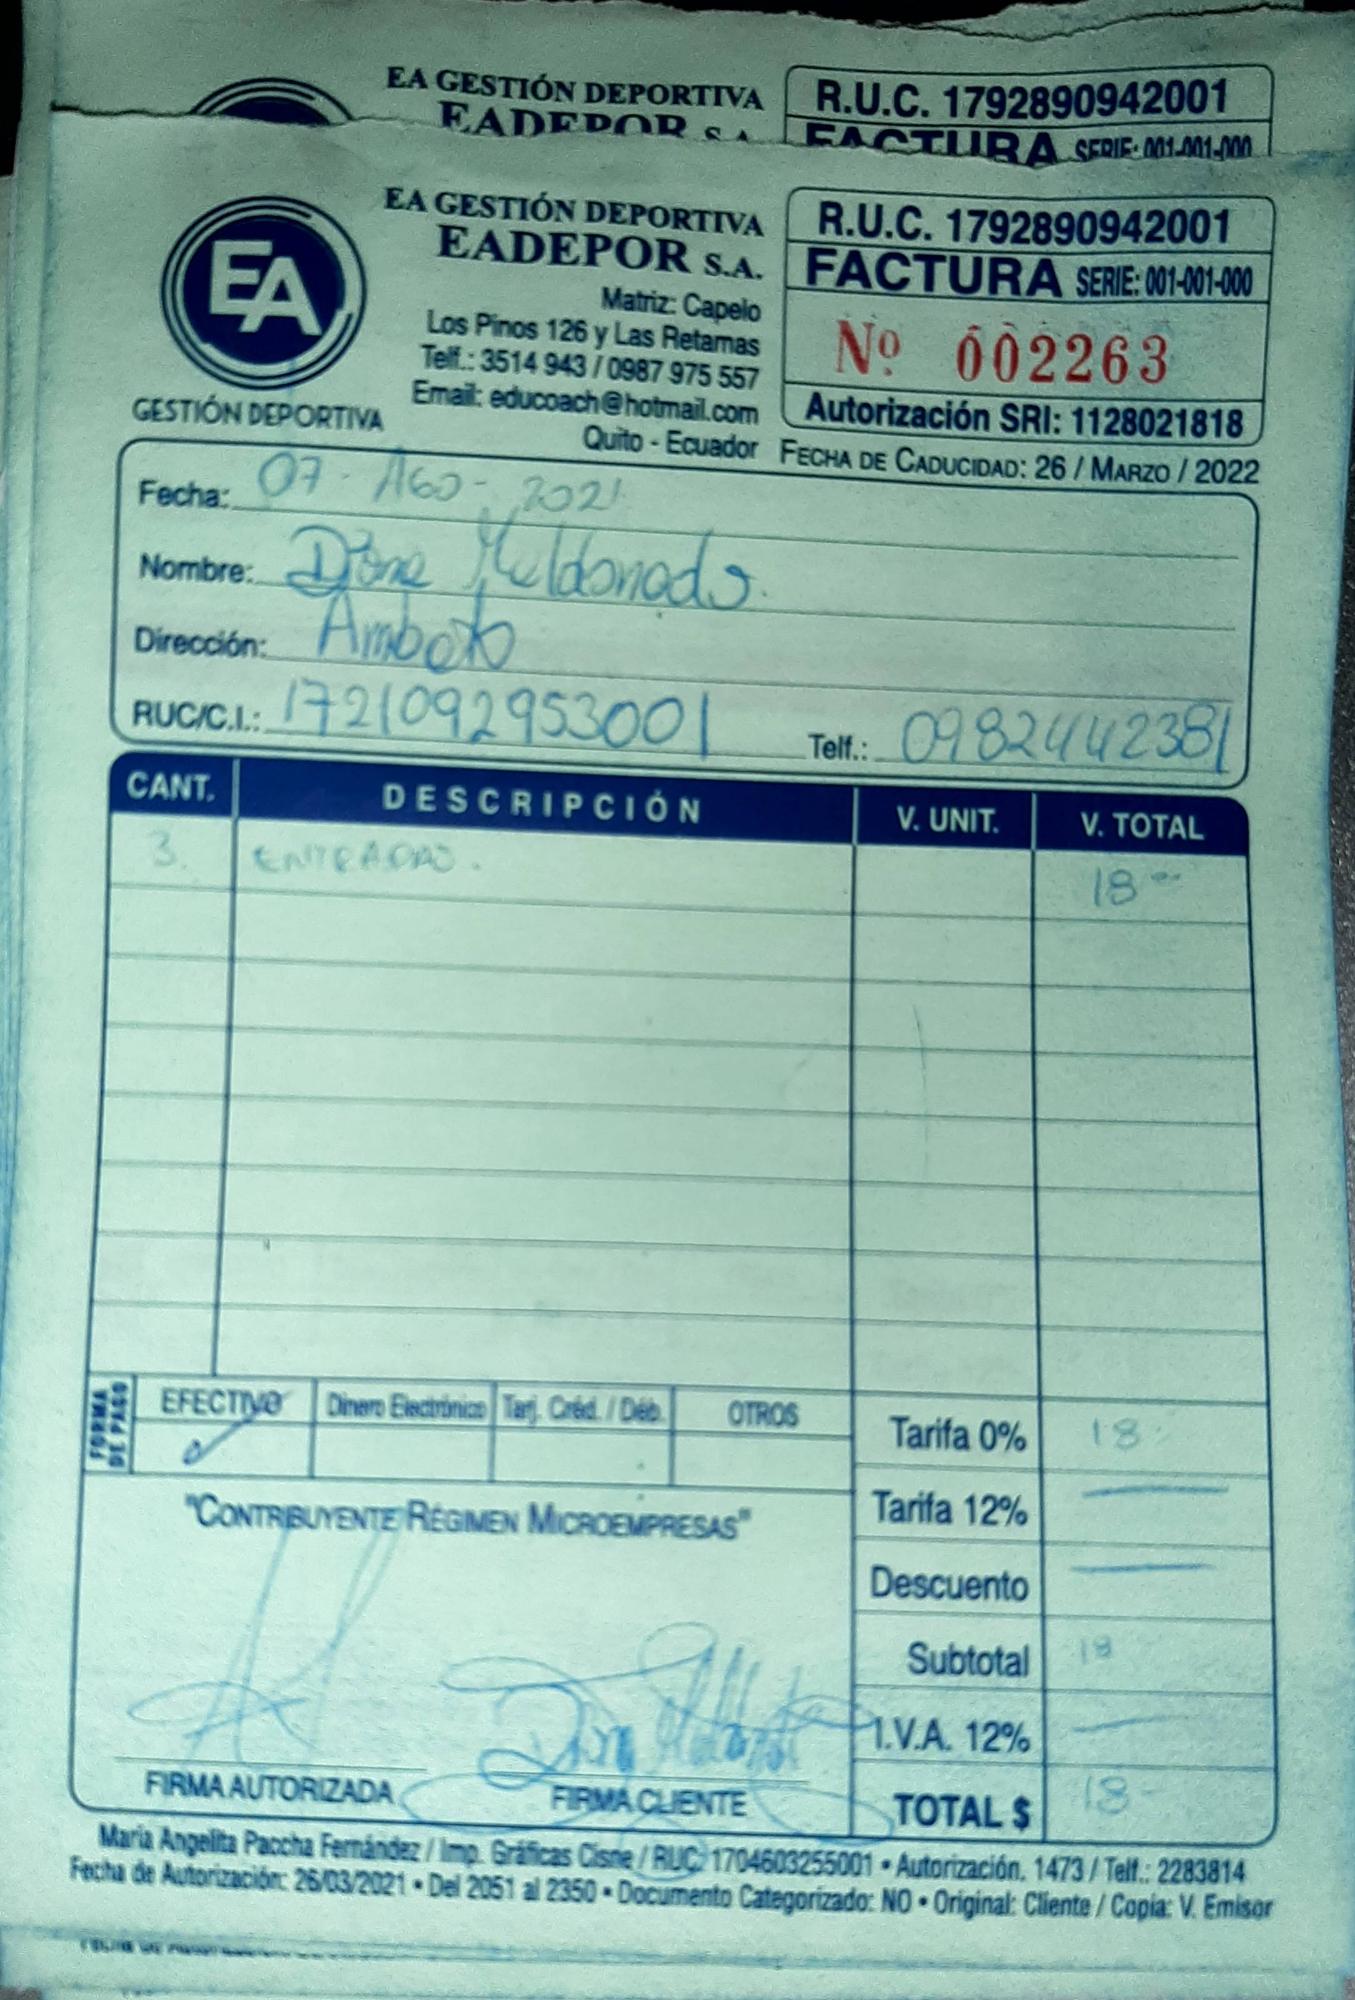 EA GESTIÓN DEPORTIVA
EADEPOR S.A.
R.U.C. 1792890942001
FACTURA SERIE: 001-001-000
EA
GESTIÓN DEPORTIVA
EA GESTIÓN DEPORTIVA
EADEPOR S.A.
Matriz: Capelo
Los Pinos 126 y Las Retamas
Telf.: 3514 943 / 0987 975 557
Email: educoach@hotmail.com
Quito - Ecuador
R.U.C. 1792890942001
FACTURA SERIE: 001-001-000
Nº 002263
Autorización SRI: 1128021818
FECHA DE CADUCIDAD: 26 / MARZO / 2022
Fecha: 07 - AGO - 2021
Nombre: Diana Maldonado.
Dirección: Ambato
RUC/C.I.: 1721092953001 Telf.: 0982442381
CANT. DESCRIPCIÓN V. UNIT. V. TOTAL
3. ENTRADAS. 18
FORMA DE PAGO
EFECTIVO Dinero Electrónico Tarj. Créd. / Déb. OTROS
Tarifa 0% 18
Tarifa 12% —
Descuento —
Subtotal 18
I.V.A. 12% —
TOTAL $ 18-
"CONTRIBUYENTE RÉGIMEN MICROEMPRESAS"
FIRMA AUTORIZADA FIRMA CLIENTE
María Angelita Paccha Fernández / Imp. Gráficas Cisne / RUC: 1704603255001 • Autorización. 1473 / Telf.: 2283814
Fecha de Autorización: 26/03/2021 • Del 2051 al 2350 • Documento Categorizado: NO • Original: Cliente / Copia: V. Emisor